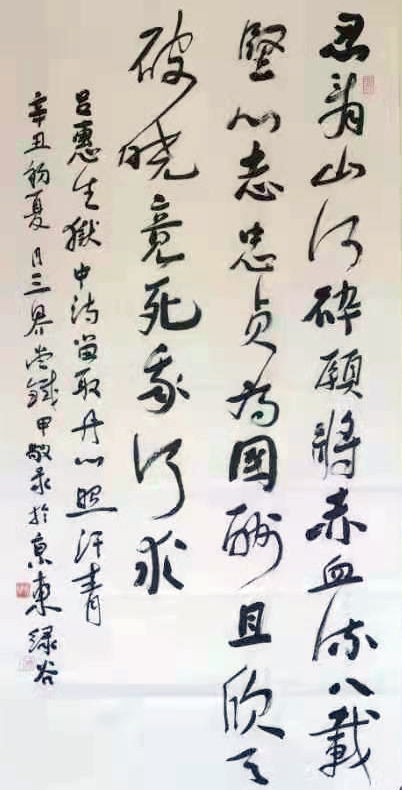 忍看山河碎願將赤血流八載
堅心志忠貞為國酬且欣天
破曉竟死我何求
呂惠生獄中詩留取丹心照汗青
辛丑初夏鐵甲敬录於京東緑谷